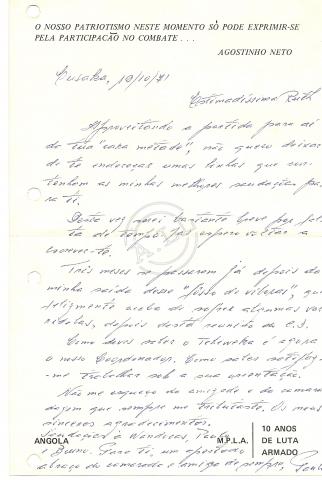 O NOSSO PATRIOTISMO NESTE MOMENTO SÓ PODE EXPRIMIR-SE
PELA PARTICIPAÇÃO NO COMBATE . . .
AGOSTINHO NETO
Lusaka, 19/10/71
Estimadíssima Ruth
Aproveitando a partida para aí
de tua "cara metade", não quero deixar
de te endereçar umas linhas que con-
tenham as minhas melhores saudações pa-
ra ti.
Desta vez serei bastante breve por fal-
ta de tempo, mas espero voltar a
escrever-te.
Três meses se passaram já depois da
minha saída desse "fosso de víboras", que
felizmente acaba de sofrer algumas var-
ridelas, depois desta reunião do C.D.
Como deves saber o Tchiweka é agora
o nosso Coordenador. Como sabes satisfaz-
-me trabalhar sob a sua orientação.
Não me esqueço da amizade e da camara-
dagem que sempre me tributaste. Os meus
sinceros agradecimentos.
Saudações a Wanda,
e Bruno. Para ti, um apertado
abraço do camarada e amigo de sempre,
ANGOLA
M.P.L.A.
10 ANOS
DE LUTA
ARMADO